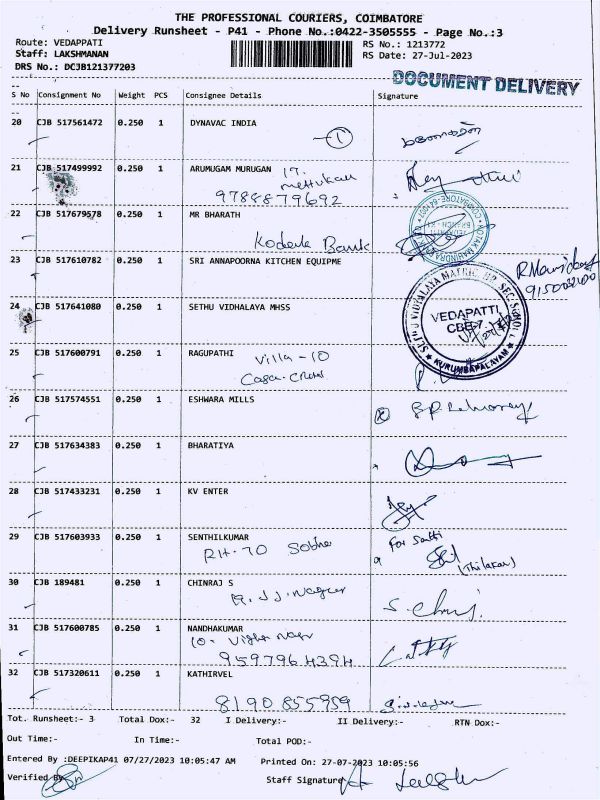 THE PROFESSIONAL COURIERS, COIMBATORE
Delivery Runsheet - P41 - Phone No.:0422-3505555 - Page No.:3
Route: VEDAPPATI RS No.: 1213772
Staff: LAKSHMANAN RS Date: 27-Jul-2023
DRS No.: DCJB121377203
DOCUMENT DELIVERY
S No Consignment No Weight PCS Consignee Details Signature
20 CJB 517561472 0.250 1 DYNAVAC INDIA
1
21 CJB 517499992 0.250 1 ARUMUGAM MURUGAN 17.
9788879692
22 CJB 517679578 0.250 1 MR BHARATH
Bank
23 CJB 517610782 0.250 1 SRI ANNAPOORNA KITCHEN EQUIPME
24 CJB 517641080 0.250 1 SETHU VIDHALAYA MHSS
VEDAPATTI
CBE-7.
KURUMBAPALAYAM
25 CJB 517600791 0.250 1 RAGUPATHI
Villa - 10
26 CJB 517574551 0.250 1 ESHWARA MILLS
27 CJB 517634383 0.250 1 BHARATIYA
28 CJB 517433231 0.250 1 KV ENTER
29 CJB 517603933 0.250 1 SENTHILKUMAR
RH-70 Sobha
For
(Thilakar)
30 CJB 189481 0.250 1 CHINRAJ S
31 CJB 517600785 0.250 1 NANDHAKUMAR
9597964394
32 CJB 517320611 0.250 1 KATHIRVEL
8190855959
Tot. Runsheet:- 3 Total Dox:- 32 I Delivery:- II Delivery:- RTN Dox:-
Out Time:- In Time:- Total POD:-
Entered By :DEEPIKAP41 07/27/2023 10:05:47 AM Printed On: 27-07-2023 10:05:56
Verified By Staff Signature